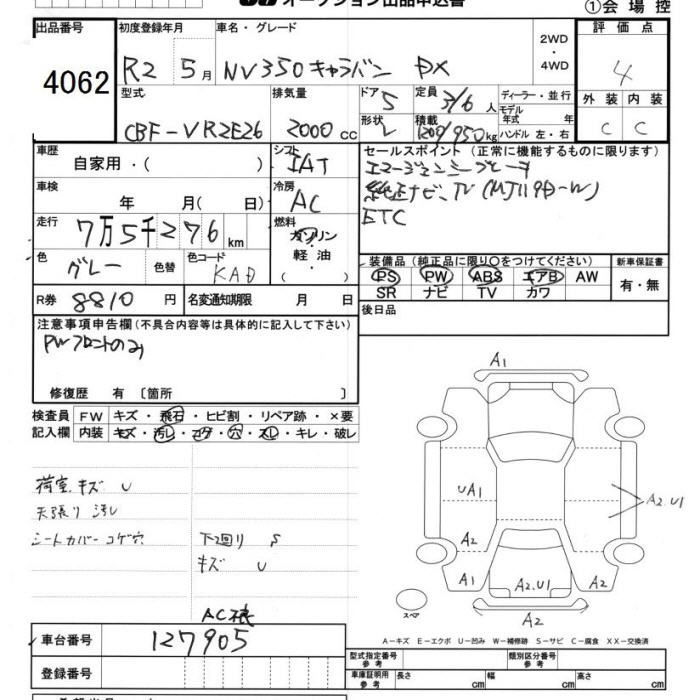 オークション出品申込書
①会場控
出品番号 初度登録年月 車名・グレード 評価点
4062 R2 5月 NV350キャラバン DX 2WD・4WD 4
型式 排気量 ドア 定員 ディーラー・並行 外装 内装
CBF-VR2E26 2000cc 5 3/6人 モデル年式 年 C C
形状 V 積載 1200/950kg ハンドル 左・右
車歴 シフト セールスポイント (正常に機能するものに限ります)
自家用・( ) IAT エマージェンシーブレーキ
車検 冷房 純正ナビ、TV (MJ119D-W)
年 月( 日) AC ETC
走行 燃料
7万5千276km ガソリン・軽油・( )
色 色コード 装備品 (純正品に限り○をつけてください) 新車保証書
グレー 色替 KAD PS PW ABS エアB AW 有・無
SR ナビ TV カワ
R券 8810円 名変通知期限 月 日 後日品
注意事項申告欄(不具合内容等は具体的に記入して下さい)
PWフロントのみ
修復歴 有 〔箇所 〕
検査員 FW キズ・飛石・ヒビ割・リペア跡・×要
記入欄 内装 キズ・汚レ・コゲ・穴・スレ・キレ・破レ
荷室キズ U
天張り汚レ
シートカバーコゲ穴 下回り S
キズ U
A1
UA1
A2.U1
A2
A1 A2.U1 A2
A2
スペア
AC臭
A-キズ E-エクボ U-凹み W-補修跡 S-サビ C-腐食 XX-交換済
車台番号 127905
型式指定番号 参考 類別区分番号 参考
登録番号 車庫証明用 参考 長さ cm 幅 cm 高さ cm